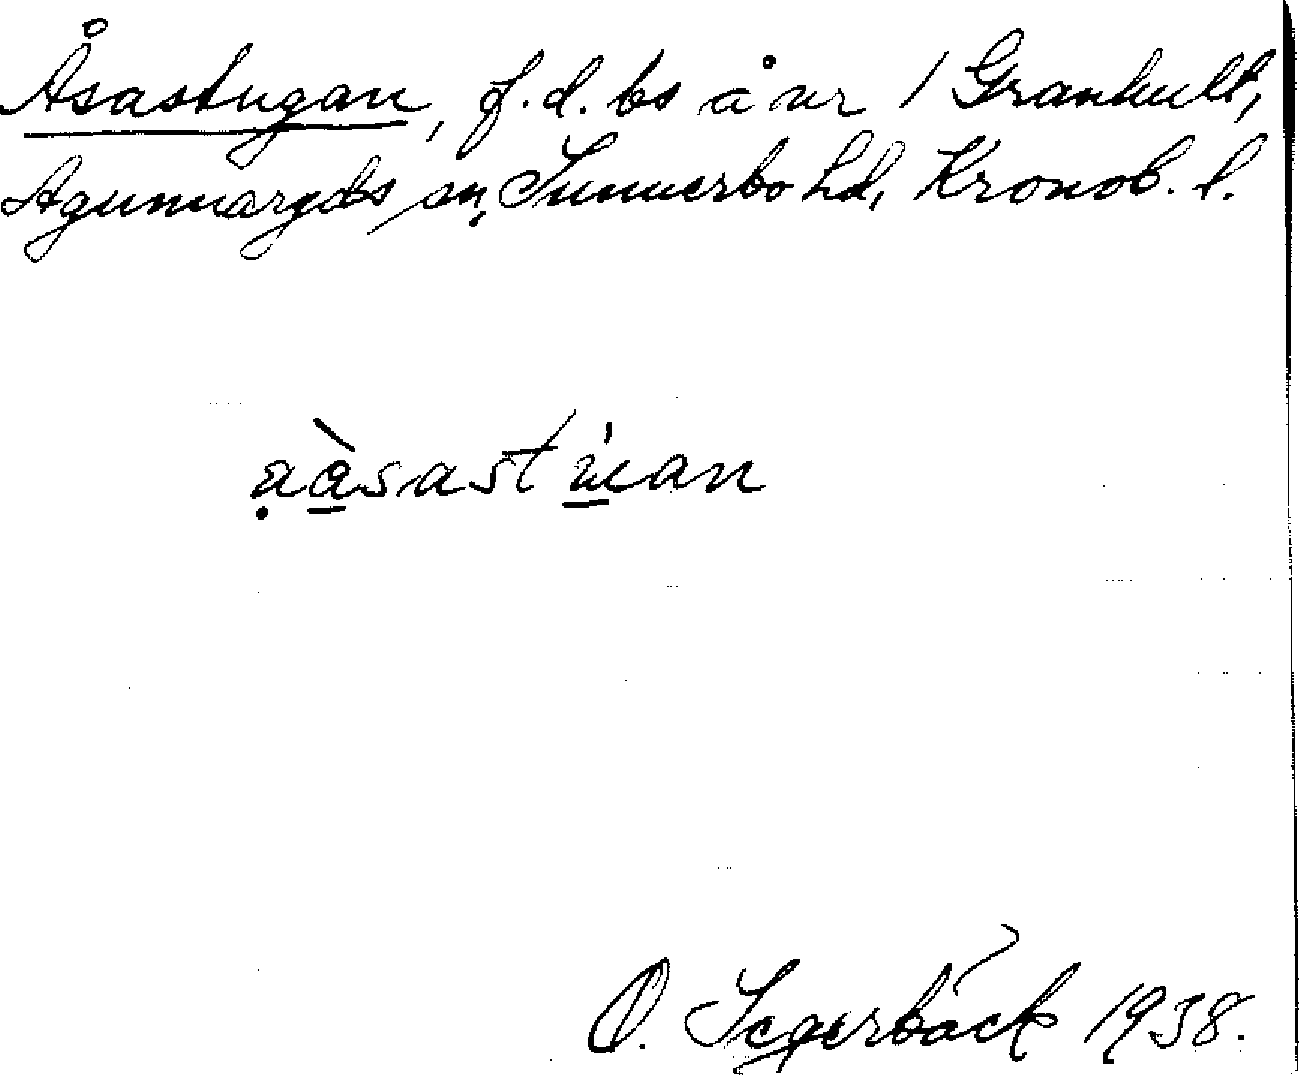 Åsastugan, f.d. bs å nr 1 Granhult,
Agunnaryds sn, Sunnerbo hd, Kronob. l.
aàsastúan
O. Segerbäck 1938.